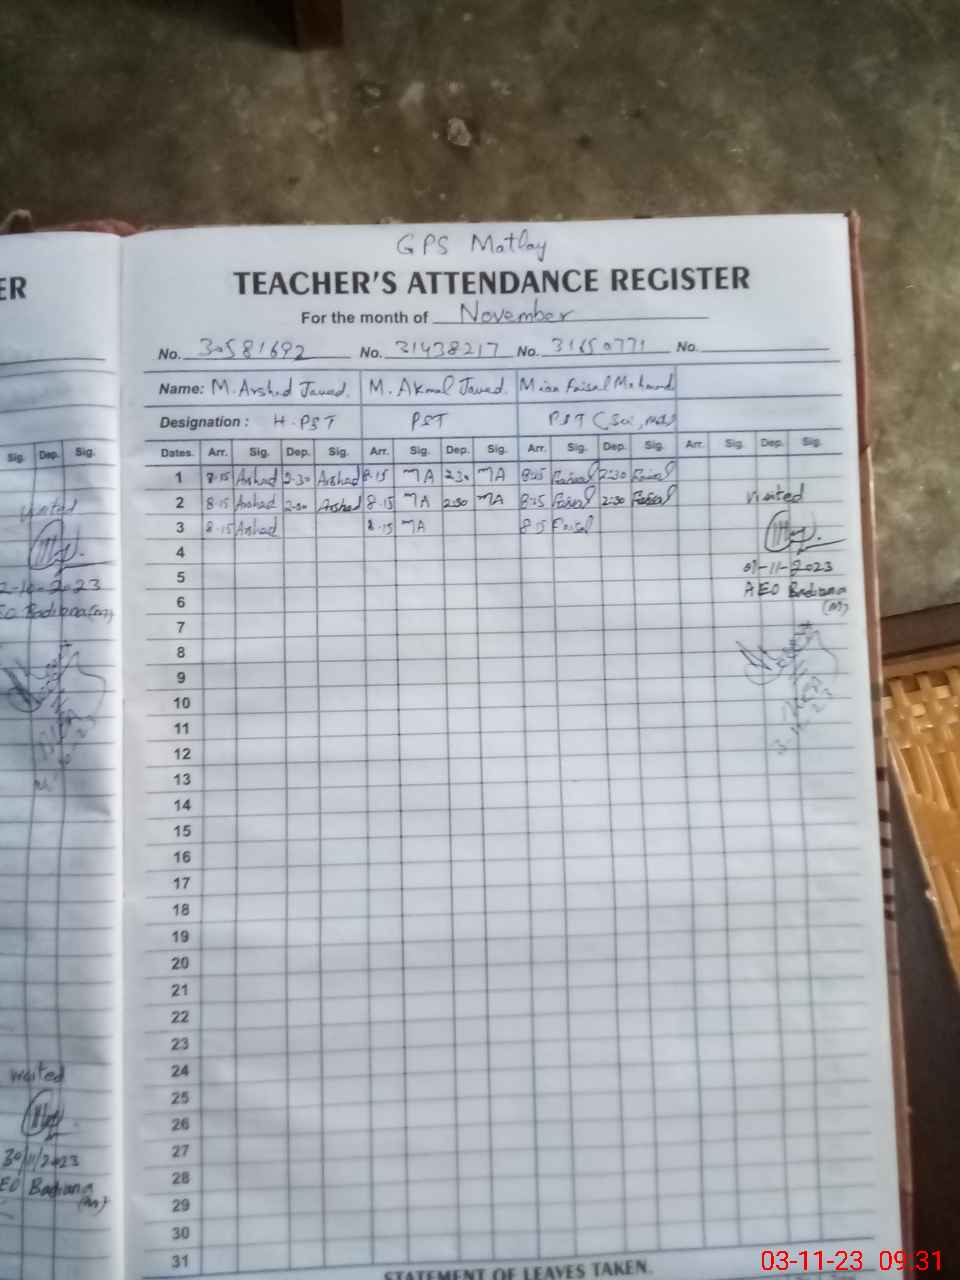 ER
Sig. Dep. Sig.
visited
2-10-2023
EO Badiana (M)
visited
30/11/2023
EO Badiana
(M)
GPS Matlay
TEACHER'S ATTENDANCE REGISTER
For the month of November
No. 30581692 No. 31438217 No. 31650771 No.
Name: M. Arshad Javed. M. Akmal Javed. Mian Faisal Mahmood
Designation : H-PST PST PST (Sci, Mat)
Dates. Arr. Sig. Dep. Sig. Arr. Sig. Dep. Sig. Arr. Sig. Dep. Sig. Arr. Sig. Dep. Sig.
1 8-15 Arshad 2-30 Arshad 8-15 MA 2:30 MA 8:15 Faisal 2:30 Faisal
2 8-15 Arshad 2-30 Arshad 8-15 MA 2:30 MA 8:15 Faisal 2:30 Faisal
3 8-15 Arshad 8-15 MA 8:15 Faisal
4
5
6
7
8
9
10
11
12
13
14
15
16
17
18
19
20
21
22
23
24
25
26
27
28
29
30
31
visited
01-11-2023
AEO Badiana
(M)
STATEMENT OF LEAVES TAKEN.
03-11-23 09:31